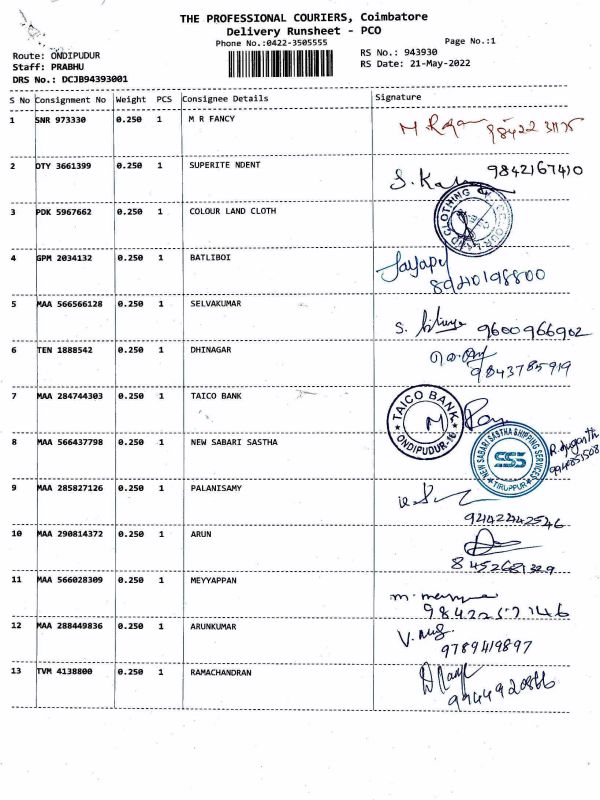 THE PROFESSIONAL COURIERS, Coimbatore
Delivery Runsheet - PCO
Phone No.:0422-3505555
Page No.:1
Route: ONDIPUDUR
RS No.: 943930
Staff: PRABHU
RS Date: 21-May-2022
DRS No.: DCJB94393001
S No Consignment No Weight PCS Consignee Details Signature
1 SNR 973330 0.250 1 M R FANCY
2 DTY 3661399 0.250 1 SUPERITE NDENT 9842167410
3 PDK 5967662 0.250 1 COLOUR LAND CLOTH
COLOUR LAND CLOTHING
4 GPM 2034132 0.250 1 BATLIBOI
8940198800
5 MAA 566566128 0.250 1 SELVAKUMAR
9600966902
6 TEN 1888542 0.250 1 DHINAGAR
9843785919
7 MAA 284744303 0.250 1 TAICO BANK
TAICO BANK
ONDIPUDUR-16
8 MAA 566437798 0.250 1 NEW SABARI SASTHA
NEW SABARI SASTHA SHIPPING SERVICES
SSS
TIRUPPUR
9 MAA 285827126 0.250 1 PALANISAMY
9442442546
10 MAA 290814372 0.250 1 ARUN
8452681329
11 MAA 566028309 0.250 1 MEYYAPPAN
12 MAA 288449836 0.250 1 ARUNKUMAR
9789419897
13 TVM 4138800 0.250 1 RAMACHANDRAN